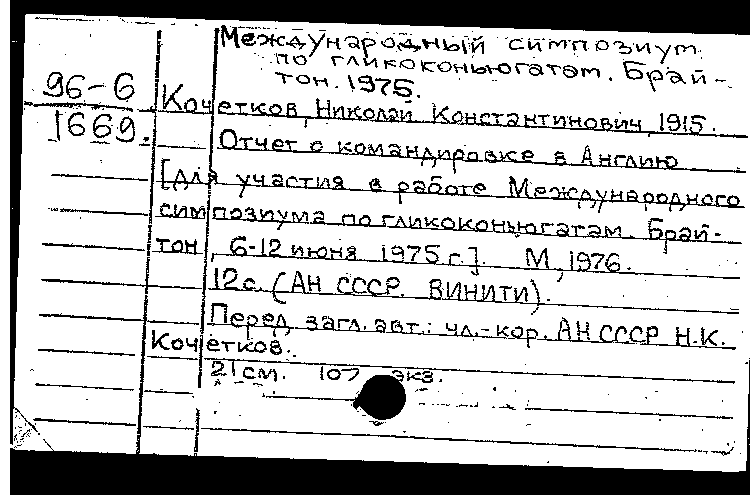 Международный симпозиум
по гликоконьюгатам. Брай-
тон. 1975.
96-6
1669.
Кочетков, Николай Константинович, 1915.
Отчет о командировке в Англию
[для участия в работе Международного
симпозиума по гликоконьюгатам. Брай-
тон, 6-12 июня 1975 г.]. М, 1976.
12 с. (АН СССР. ВИНИТИ).
Перед загл. авт.: чл.-кор. АН СССР Н.К.
Кочетков.
21 см. 107 экз.